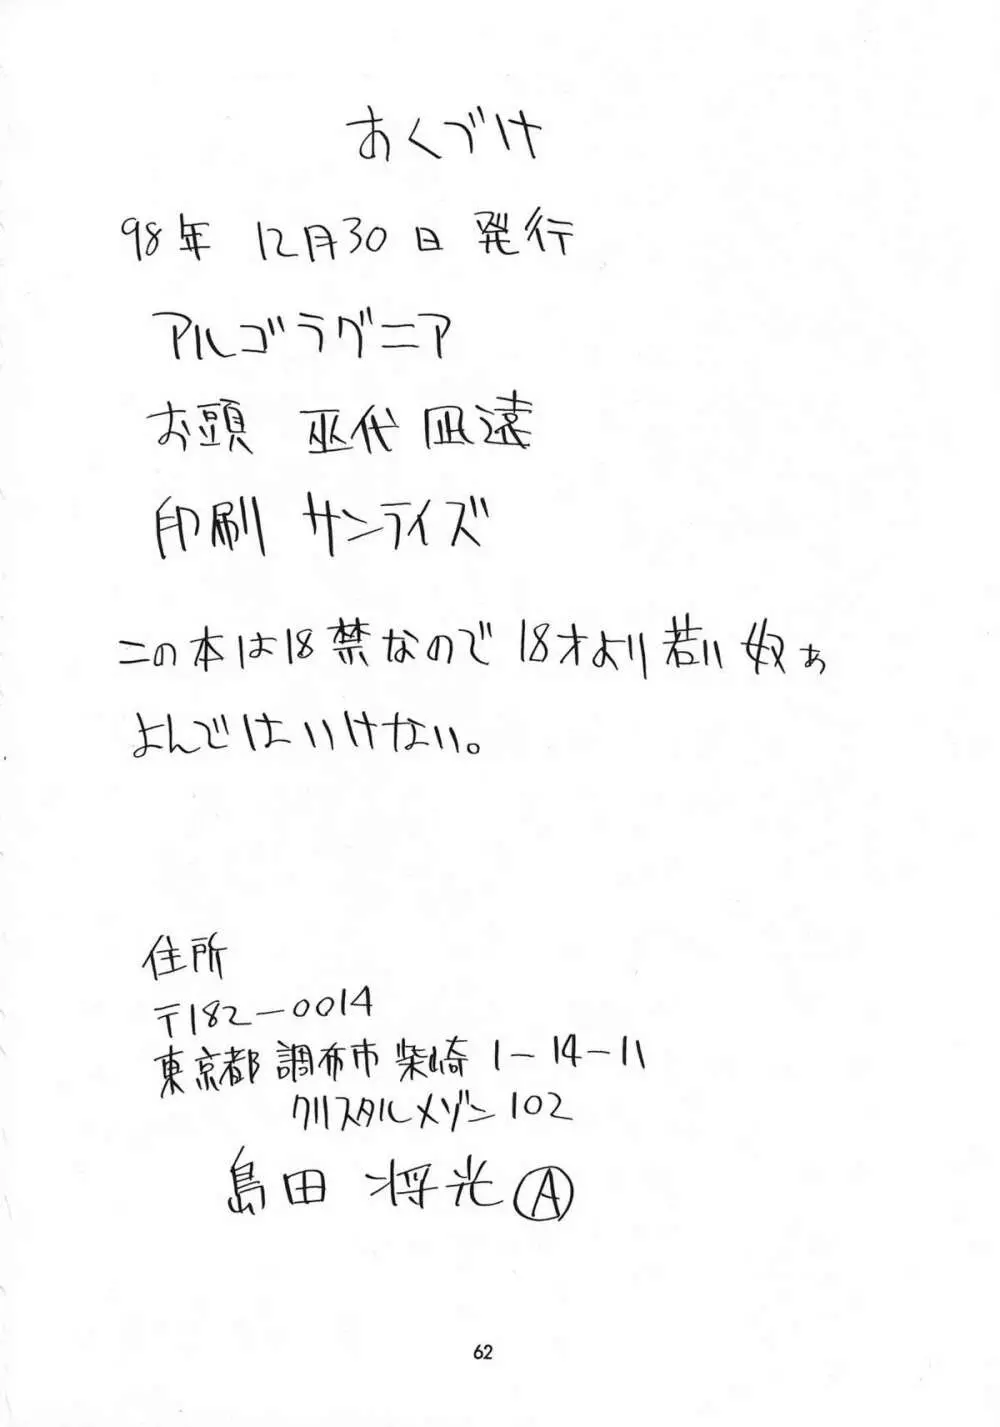 おくづけ
98年 12月30日 発行
アルゴラグニア
お頭 巫代 凪遠
印刷 サンライズ
この本は18禁なので18才より若い奴ぁ
よんではいけない。
住所
〒182-0014
東京都 調布市 柴崎 1-14-11
クリスタルメゾン 102
島田 将光 Ⓐ
62